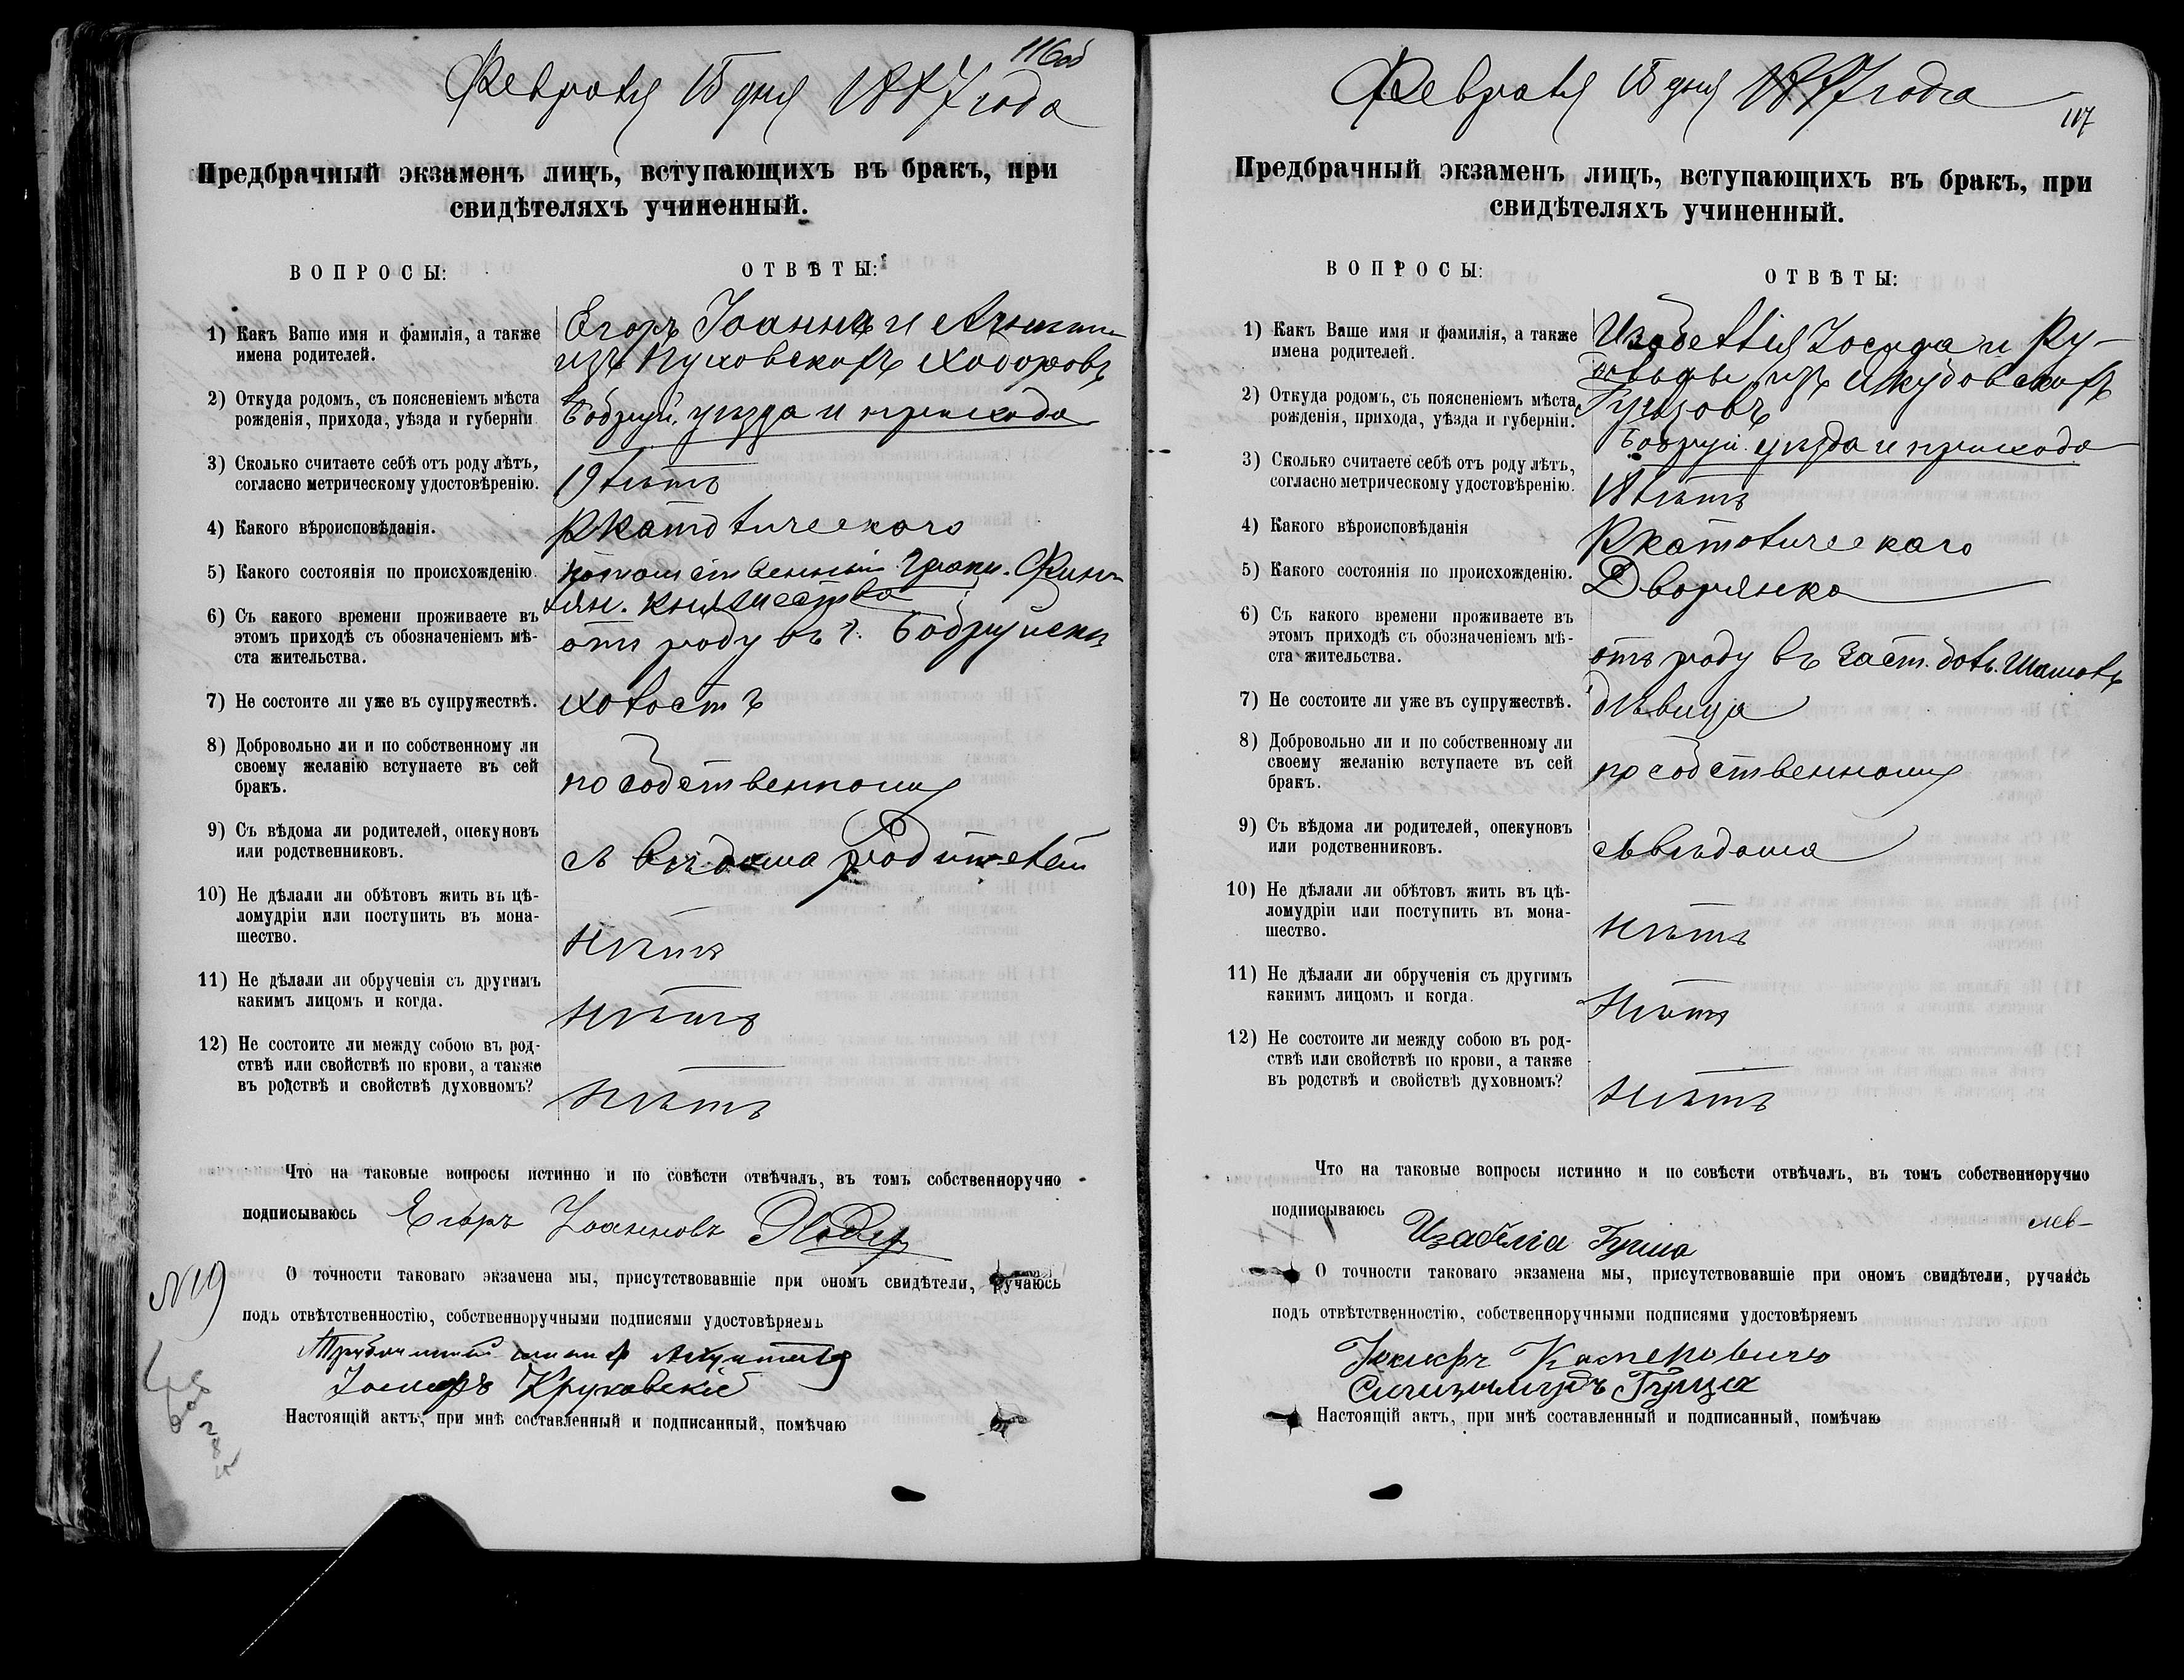 116об
Февраля 15 дня 1887 года
Предбрачный экзаменъ лицъ, вступающихъ въ бракъ, при
свидѣтеляхъ учиненный.
ВОПРОСЫ:
ОТВѢТЫ:
1) Какъ Ваше имя и фамилія, а также
имена родителей.
Егоръ Іоанна и
изъ
2) Откуда родомъ, съ поясненіемъ мѣста
рожденія, прихода, уѣзда и губерніи
Бобруй. уѣзда и прихода
3) Сколько считаете себѣ отъ роду лѣтъ,
согласно метрическому удостовѣренію.
19 лѣтъ
4) Какого вѣроисповѣданія.
Ркатолическаго
5) Какого состоянія по происхожденію.
Финлян. княжества
6) Съ какого времени проживаете въ
этомъ приходѣ съ обозначеніемъ мѣ-
ста жительства.
отъ роду въ г. Бобруйскѣ
7) Не состоите ли уже въ супружествѣ.
холостъ
8) Добровольно ли и по собственному ли
своему желанію вступаете въ сей
бракъ.
по собственному
9) Съ вѣдома ли родителей, опекуновъ
или родственниковъ.
съ вѣдома родителей
10) Не дѣлали ли обѣтовъ жить въ цѣ-
ломудріи или поступить въ мона-
шество.
нѣтъ
11) Не дѣлали ли обрученія съ другимъ
какимъ лицомъ и когда.
нѣтъ
12) Не состоите ли между собою въ род-
ствѣ или свойствѣ по крови, а также
въ родствѣ и свойствѣ духовномъ?
нѣтъ
Что на таковые вопросы истинно и по совѣсти отвѣчалъ, въ томъ собственноручно
подписываюсь Егоръ Іоанновъ
N 19
О точности таковаго экзамена мы, присутствовавшіе при ономъ свидѣтели, ручаюсь
подъ отвѣтственностію, собственноручными подписями удостовѣряемъ
Іосифъ Круковскій
Настоящій актъ, при мнѣ составленный и подписанный, помѣчаю
Февраля 15 дня 1887 года
117
Предбрачный экзаменъ лицъ, вступающихъ въ бракъ, при
свидѣтеляхъ учиненный.
ВОПРОСЫ:
ОТВѢТЫ:
1) Какъ Ваше имя и фамилія, а также
имена родителей.
Изабеллія Іосифа и Ру-
изъ
2) Откуда родомъ, съ поясненіемъ мѣста
рожденія, прихода, уѣзда и губерніи.
Бобруй. уѣзда и прихода
3) Сколько считаете себѣ отъ роду лѣтъ,
согласно метрическому удостовѣренію.
18 лѣтъ
4) Какого вѣроисповѣданія
Ркатолическаго
5) Какого состоянія по происхожденію.
Дворянка
6) Съ какого времени проживаете въ
этомъ приходѣ съ обозначеніемъ мѣ-
ста жительства.
отъ роду въ
7) Не состоите ли уже въ супружествѣ.
дѣвица
8) Добровольно ли и по собственному ли
своему желанію вступаете въ сей
бракъ.
по собственному
9) Съ вѣдома ли родителей, опекуновъ
или родственниковъ.
съ вѣдома
10) Не дѣлали ли обѣтовъ жить въ цѣ-
ломудріи или поступить въ мона-
шество.
нѣтъ
11) Не дѣлали ли обрученія съ другимъ
какимъ лицомъ и когда.
нѣтъ
12) Не состоите ли между собою въ род-
ствѣ или свойствѣ по крови, а также
въ родствѣ и свойствѣ духовномъ?
нѣтъ
Что на таковые вопросы истинно и по совѣсти отвѣчалъ, въ томъ собственноручно
подписываюсь
Изабэліа
О точности таковаго экзамена мы, присутствовавшіе при ономъ свидѣтели, ручаясь
подъ отвѣтственностію, собственноручными подписями удостовѣряемъ
Настоящій актъ, при мнѣ составленный и подписанный, помѣчаю